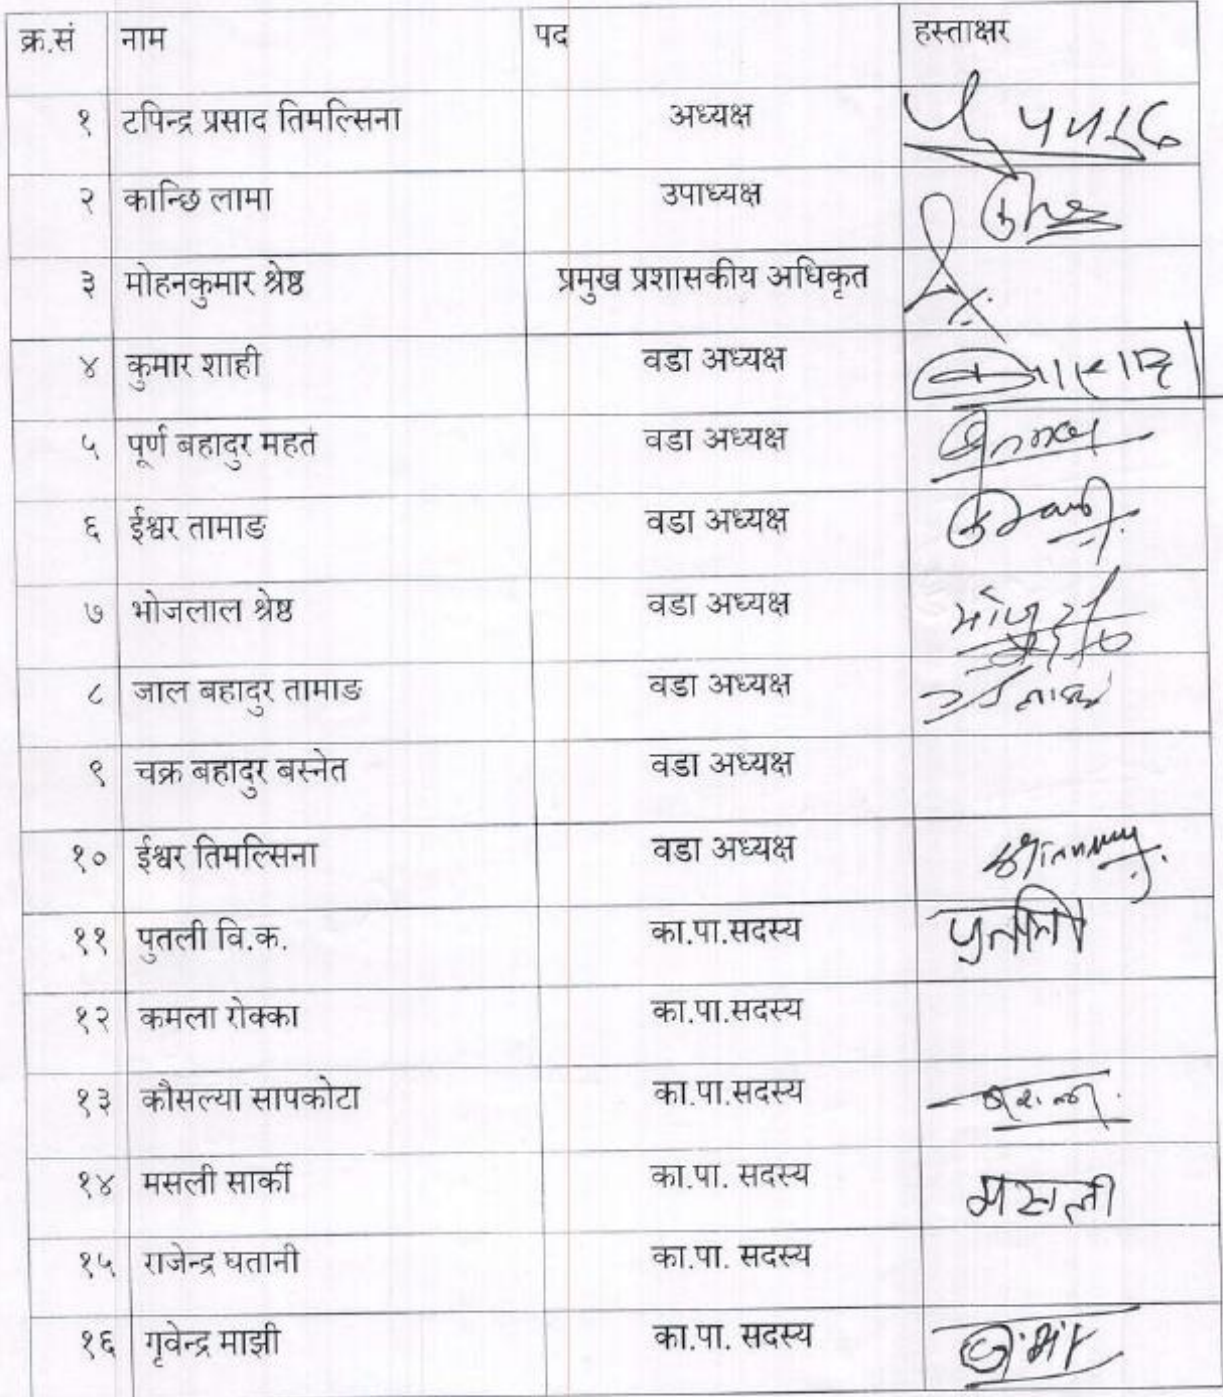 क्र.सं नाम पद हस्ताक्षर
१ टपिन्द्र प्रसाद तिमल्सिना अध्यक्ष
२ कान्छि लामा उपाध्यक्ष
३ मोहनकुमार श्रेष्ठ प्रमुख प्रशासकीय अधिकृत
४ कुमार शाही वडा अध्यक्ष
५ पूर्ण बहादुर महत वडा अध्यक्ष
६ ईश्वर तामाङ वडा अध्यक्ष
७ भोजलाल श्रेष्ठ वडा अध्यक्ष
८ जाल बहादुर तामाङ वडा अध्यक्ष
९ चक्र बहादुर बस्नेत वडा अध्यक्ष
१० ईश्वर तिमल्सिना वडा अध्यक्ष
११ पुतली वि.क. का.पा.सदस्य
१२ कमला रोक्का का.पा.सदस्य
१३ कौसल्या सापकोटा का.पा.सदस्य
१४ मसली सार्की का.पा. सदस्य मसली
१५ राजेन्द्र घतानी का.पा. सदस्य
१६ गृवेन्द्र माझी का.पा. सदस्य